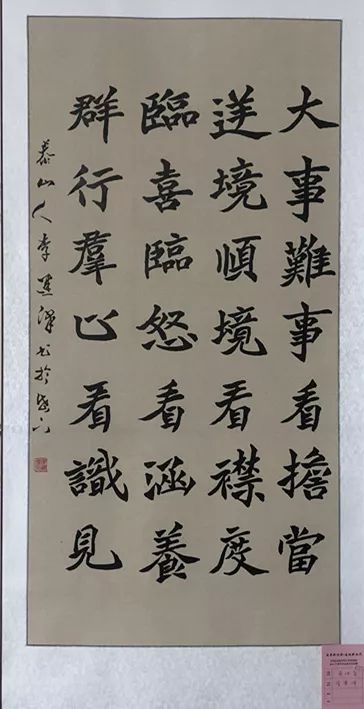 大事難事看擔當
逆境順境看襟度
臨喜臨怒看涵養
群行羣止看識見
山人李书於